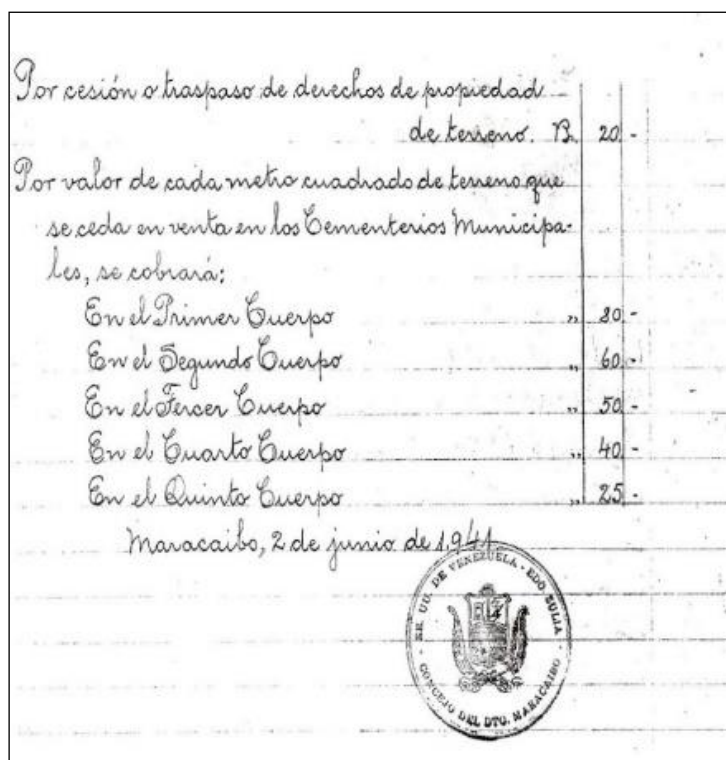 Por cesión o traspaso de derechos de propiedad
de terreno. B. 20 -
Por valor de cada metro cuadrado de terreno que
se ceda en venta en los Cementerios Municipa-
les, se cobrará:
En el Primer Cuerpo " 80 -
En el Segundo Cuerpo " 60 -
En el Tercer Cuerpo " 50 -
En el Cuarto Cuerpo " 40 -
En el Quinto Cuerpo " 25 -
Maracaibo, 2 de junio de 1.941
EE. UU. DE VENEZUELA - EDO. ZULIA
CONCEJO DEL DTO. MARACAIBO